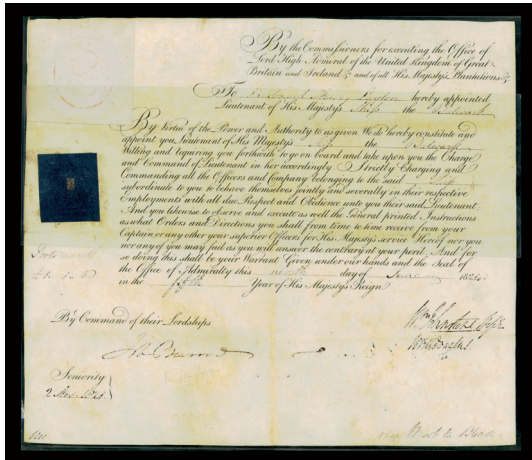 By the Commissioners for executing the Office of
Lord High Admiral of the United Kingdom of Great
Britain and Ireland &c and of all His Majesty's Plantations &c
To Lieutenant Henry hereby appointed
Lieutenant of His Majesty's Ship the Bulwark
By Virtue of the Power and Authority to us given We do hereby constitute and
appoint you Lieutenant of His Majesty's Ship the Bulwark
Willing and requiring you forthwith to go on board and take upon you the Charge
and Command of Lieutenant in her accordingly Strictly Charging and
Commanding all the Officers and Company belonging to the said Ship
subordinate to you to behave themselves jointly and severally in their respective
Employments with all due Respect and Obedience unto you their said Lieutenant
And you likewise to observe and execute as well the General printed Instructions
as what Orders and Directions you shall from time to time receive from your
Captain or any other your superior Officers for His Majesty's service Hereof nor you
nor any of you may fail as you will answer the contrary at your peril And for
so doing this shall be your Warrant Given under our hands and the Seal of
the Office of Admiralty this ninth day of June 1824
in the fifth Year of His Majesty's Reign
By Command of their Lordships
Seniority